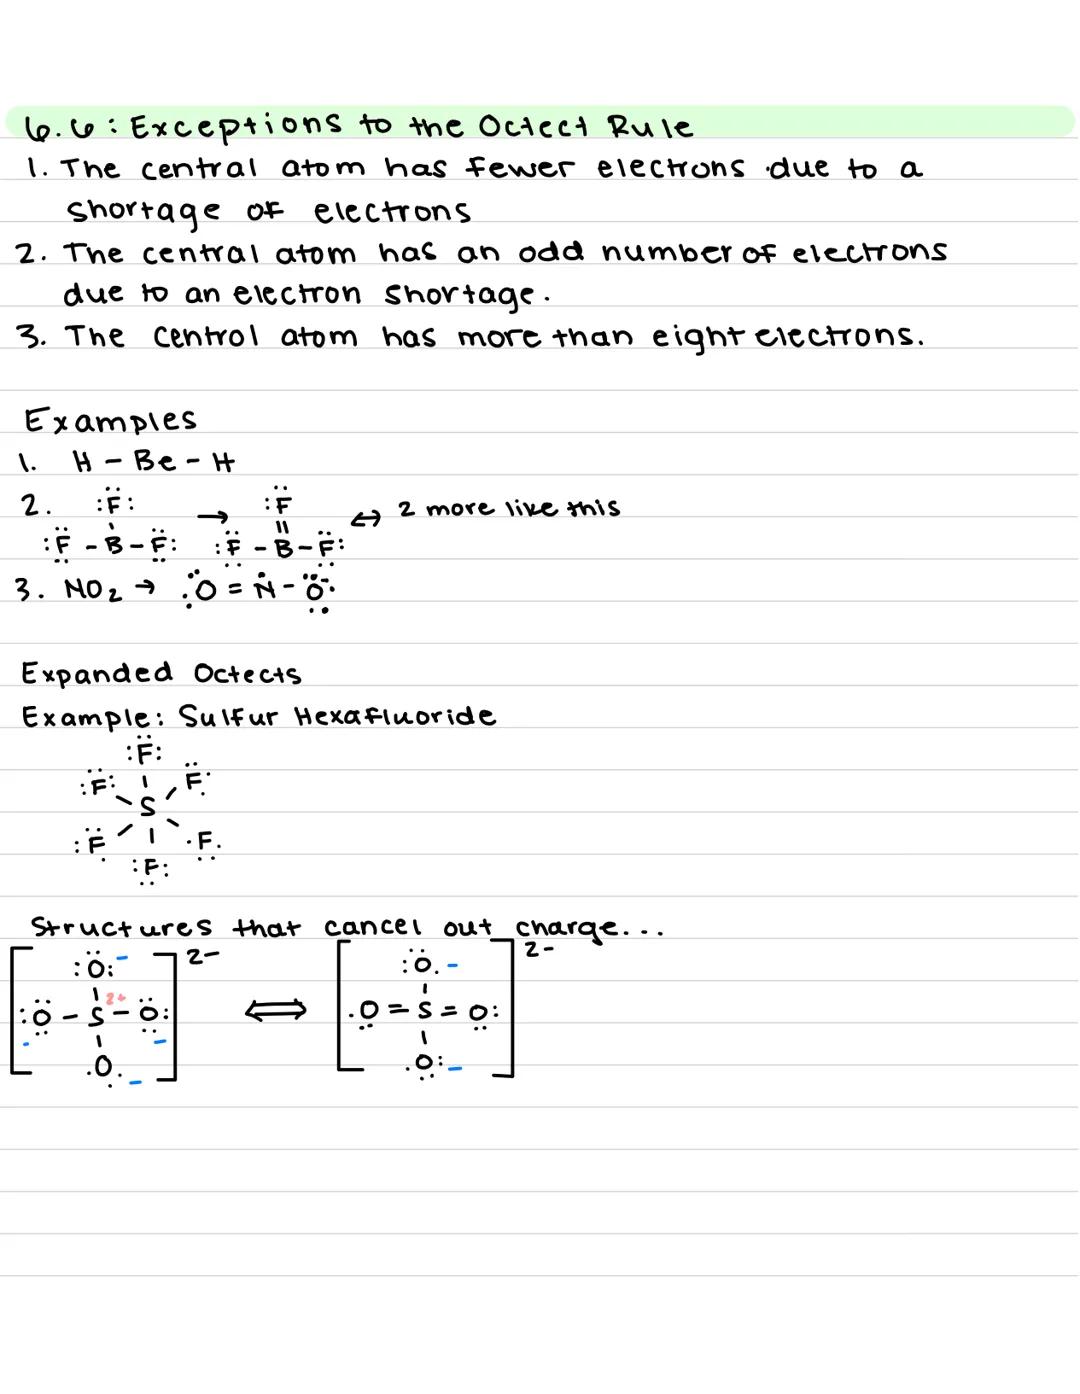 6.6: Exceptions to the Octect Rule
1. The central atom has fewer electrons due to a
shortage of electrons
2. The central atom has an odd number of electrons
due to an electron shortage.
3. The central atom has more than eight electrons.
Examples
1. H - Be - H
2. :F: → :F ↔ 2 more like this
:F - B - F: :F - B - F:
3. NO₂ → :O = N - O:
Expanded Octects
Example: Sulfur Hexafluoride
:F:
:F: F:
S
:F .F.
:F:
Structures that cancel out charge...
[ :O: - ] 2- [ :O. - ] 2-
:O - S 2+ - O: ⟺ .O = S = O:
- -
.O. - .O: -